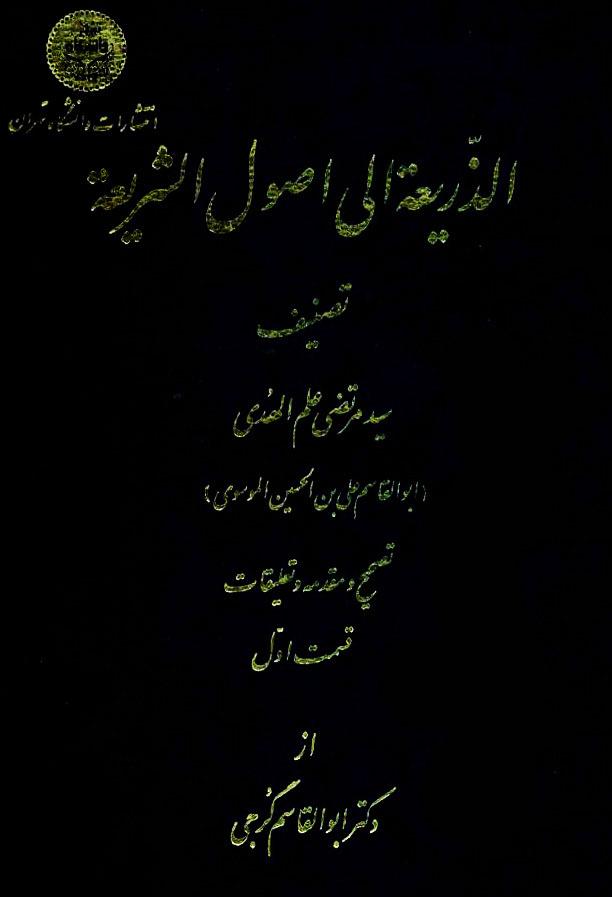 انتشارات دانشگاه تهران
الذّريعة الى اصول الشريعة
تصنيف
سيد مرتضى علم الهدى
(ابوالقاسم على بن الحسين الموسوى)
تصحيح و مقدمه و تعليقات
قسمت اوّل
از
دكتر ابوالقاسم گرجى